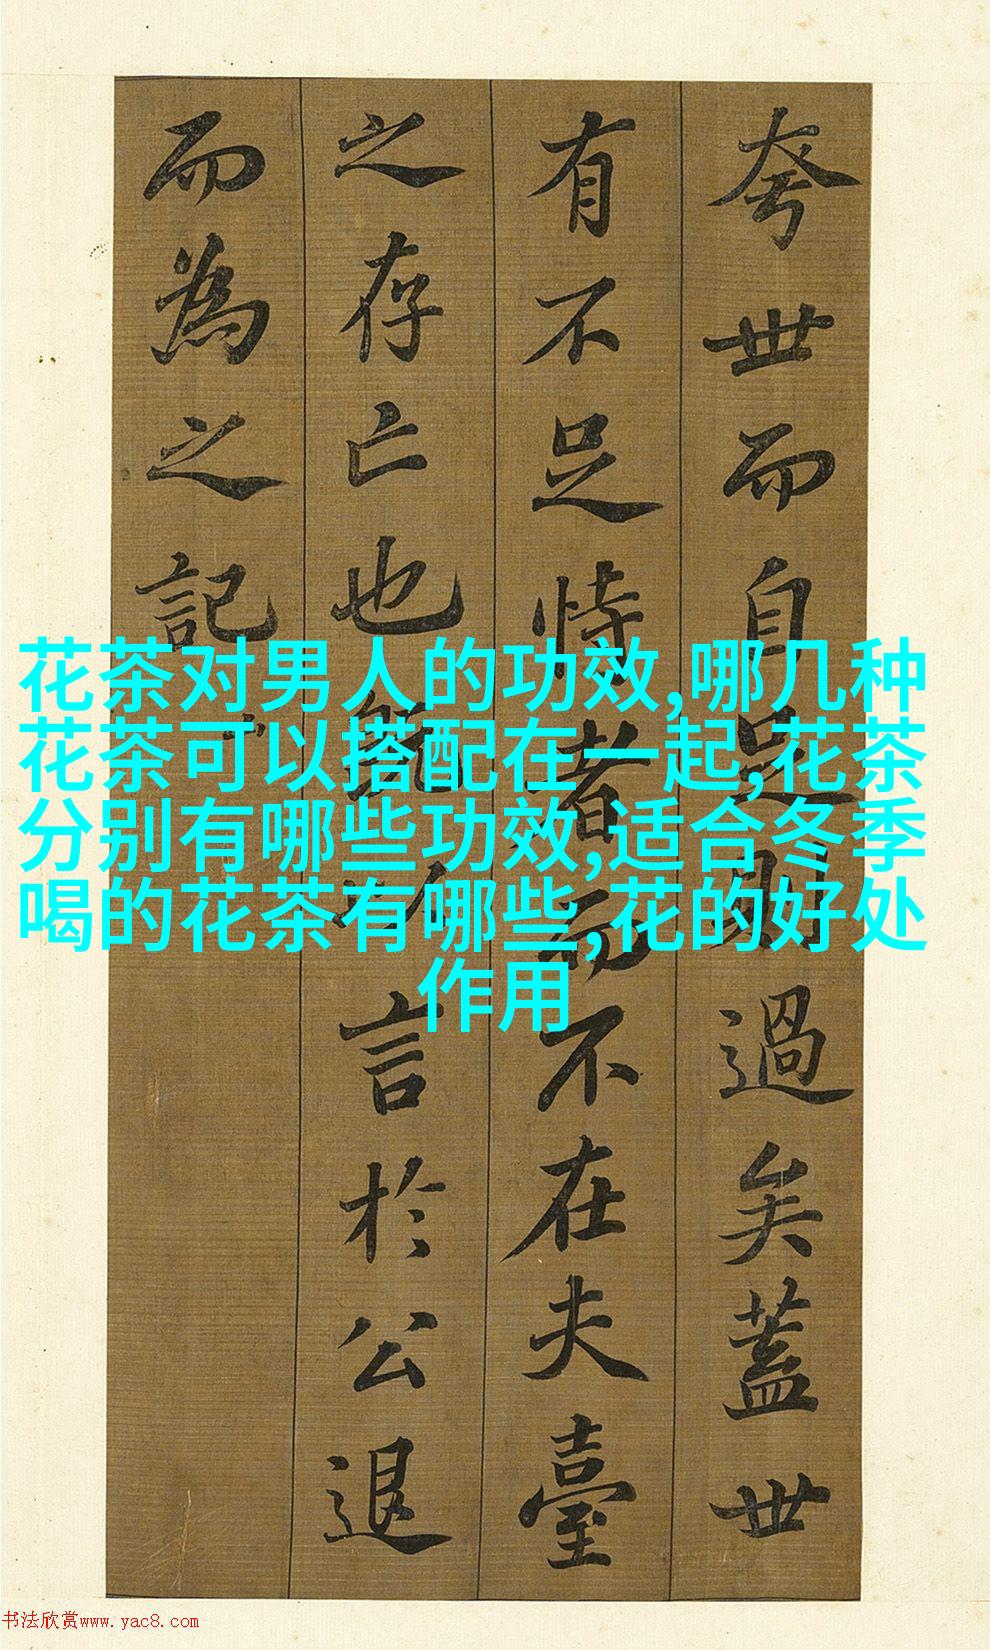 花茶对男人的功效,哪几种
花茶可以搭配在一起,花茶
分别有哪些功效,适合冬季
喝的花茶有哪些,花的好处
作用
夸世而自足則過矣蓋世
有不足恃者而不在夫臺
之存亡也言於公退
而為之記
书法欣赏www.yac8.com